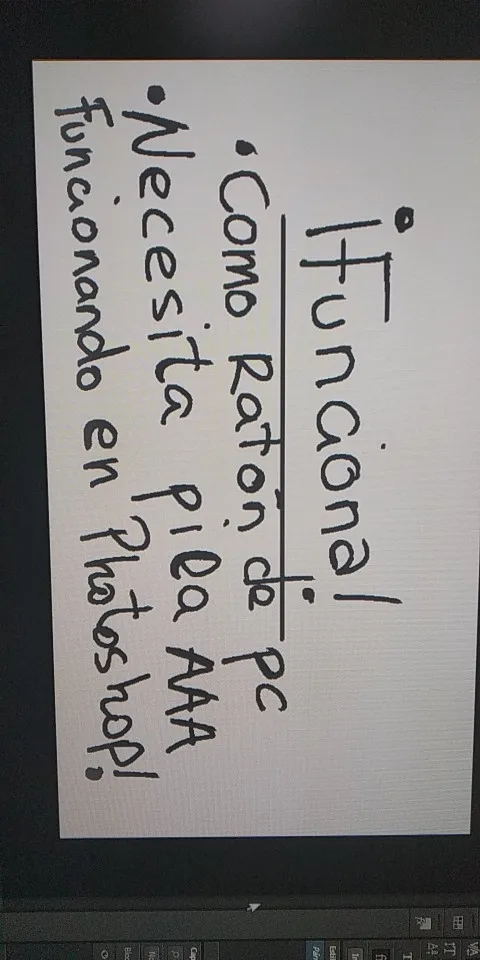 ¡Funciona!
• Como Ratón de PC
• Necesita pila AAA
Funcionando en Photoshop!